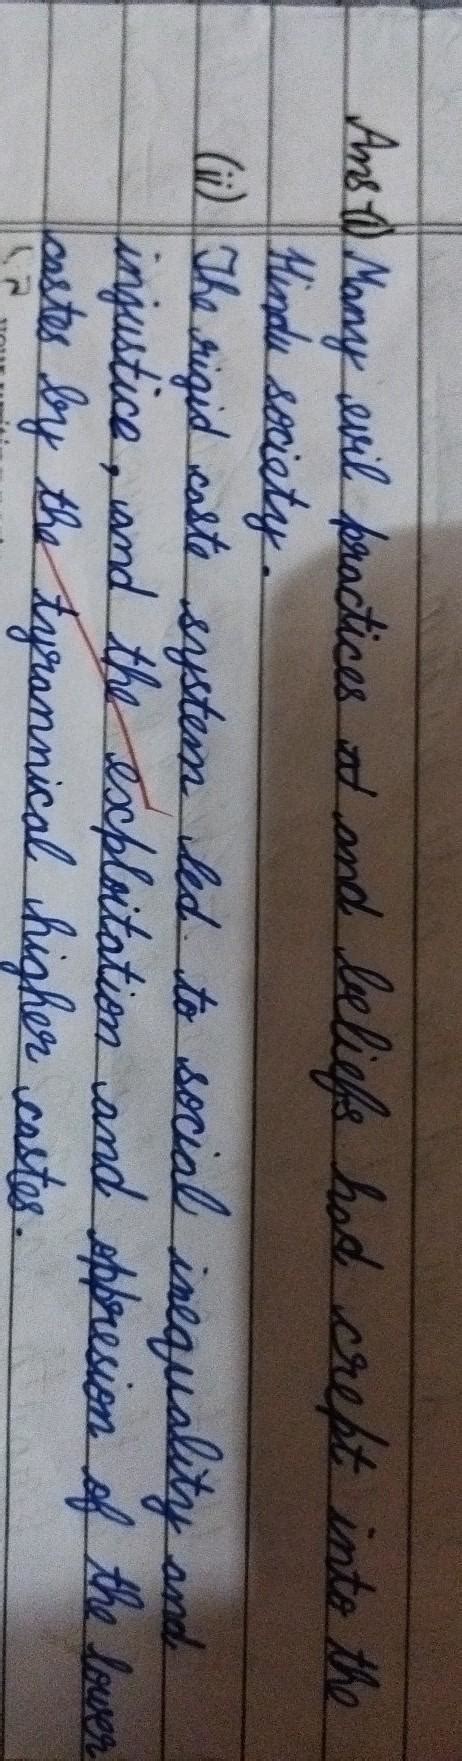 Ans-(i) Many evil practices at and beliefs had crept into the
Hindu society.
(ii) The rigid caste system led to social inequality and
injustice, and the exploitation and oppresion of the lower
castes by the tyrannical higher castes.